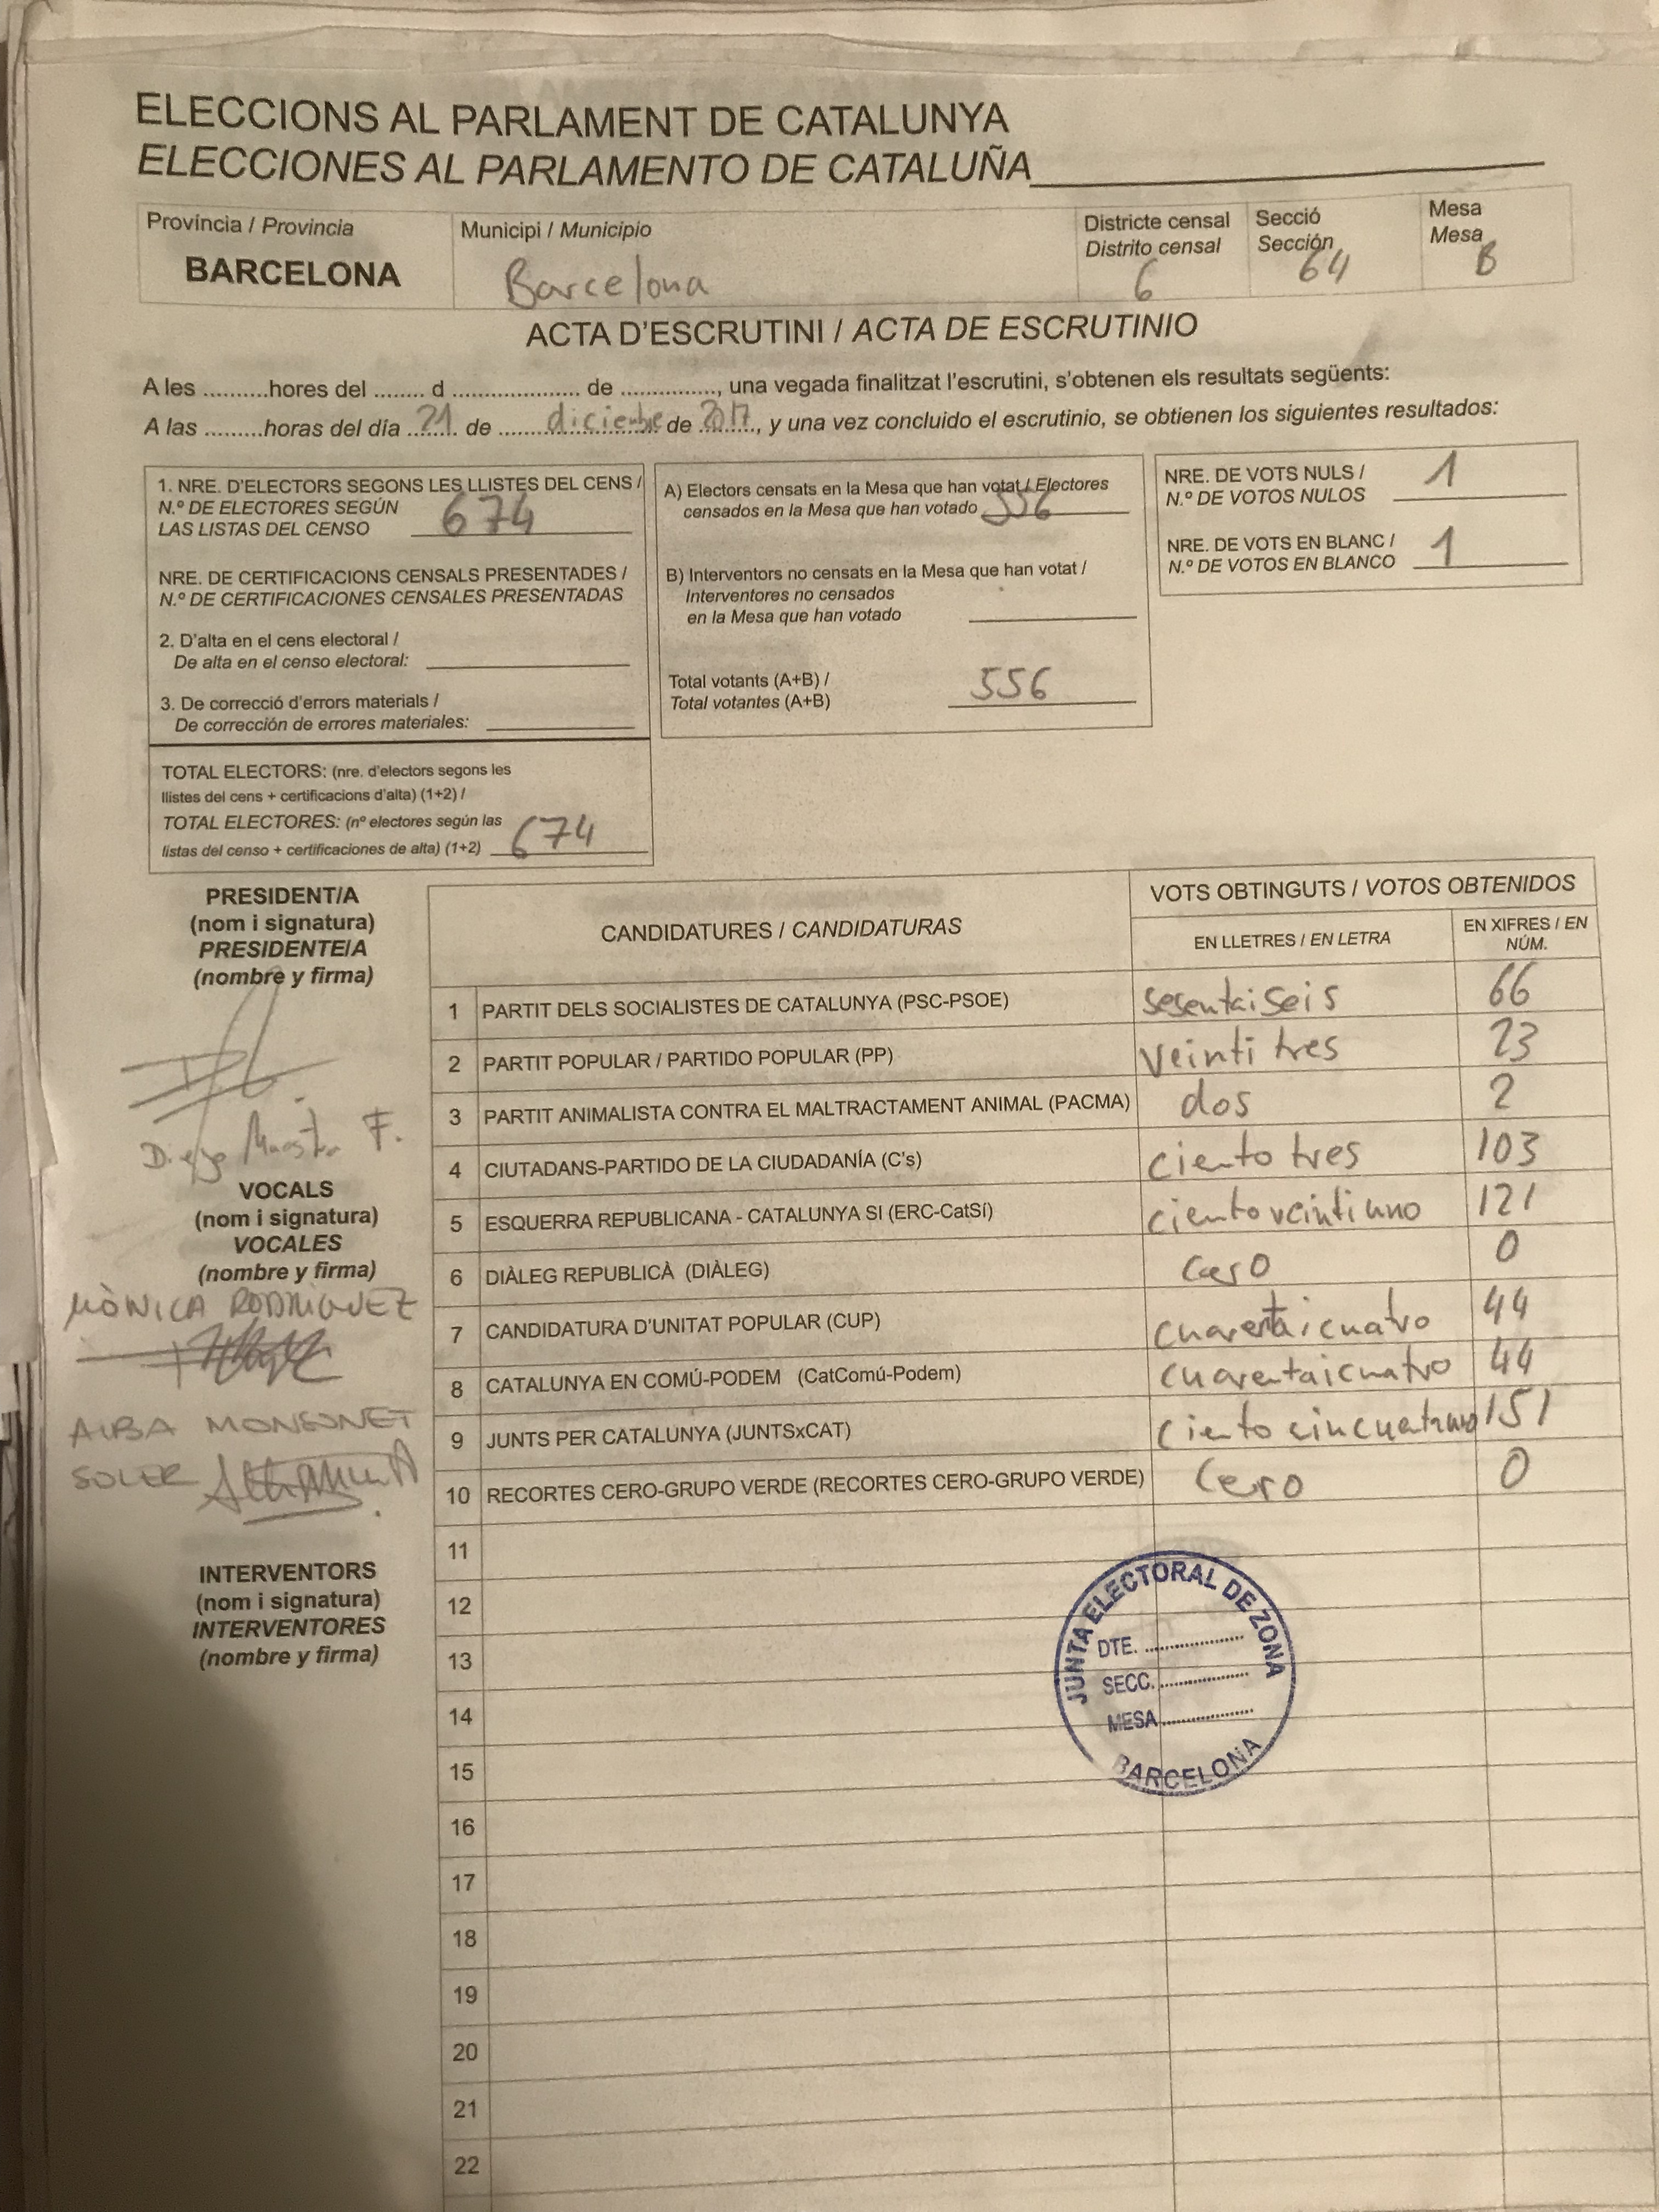 ELECCIONS AL PARLAMENT DE CATALUNYA
ELECCIONES AL PARLAMENTO DE CATALUÑA
Província / Provincia
BARCELONA
Municipi / Municipio
Barcelona
Districte censal
Distrito censal
6
Secció
Sección
64
Mesa
Mesa
B
ACTA D'ESCRUTINI / ACTA DE ESCRUTINIO
A les ..........hores del ........ d .................... de ..............., una vegada finalitzat l'escrutini, s'obtenen els resultats següents:
A las .........horas del día 21 de diciembre de 2017, y una vez concluido el escrutinio, se obtienen los siguientes resultados:
1. NRE. D'ELECTORS SEGONS LES LLISTES DEL CENS /
N.º DE ELECTORES SEGÚN
LAS LISTAS DEL CENSO 674
NRE. DE CERTIFICACIONS CENSALS PRESENTADES /
N.º DE CERTIFICACIONES CENSALES PRESENTADAS
2. D'alta en el cens electoral /
De alta en el censo electoral:
3. De correcció d'errors materials /
De corrección de errores materiales:
TOTAL ELECTORS: (nre. d'electors segons les
llistes del cens + certificacions d'alta) (1+2) /
TOTAL ELECTORES: (nº electores según las
listas del censo + certificaciones de alta) (1+2) 674
A) Electors censats en la Mesa que han votat / Electores
censados en la Mesa que han votado 556
B) Interventors no censats en la Mesa que han votat /
Interventores no censados
en la Mesa que han votado
Total votants (A+B) /
Total votantes (A+B) 556
NRE. DE VOTS NULS /
N.º DE VOTOS NULOS 1
NRE. DE VOTS EN BLANC /
N.º DE VOTOS EN BLANCO 1
PRESIDENT/A
(nom i signatura)
PRESIDENTE/A
(nombre y firma)
Diego F.
VOCALS
(nom i signatura)
VOCALES
(nombre y firma)
MÒNICA RODRIGUEZ
ALBA MONSONET
SOLER
INTERVENTORS
(nom i signatura)
INTERVENTORES
(nombre y firma)
CANDIDATURES / CANDIDATURAS
VOTS OBTINGUTS / VOTOS OBTENIDOS
EN LLETRES / EN LETRA
EN XIFRES / EN
NÚM.
1 PARTIT DELS SOCIALISTES DE CATALUNYA (PSC-PSOE) sesentaiseis 66
2 PARTIT POPULAR / PARTIDO POPULAR (PP) veinti tres 23
3 PARTIT ANIMALISTA CONTRA EL MALTRACTAMENT ANIMAL (PACMA) dos 2
4 CIUTADANS-PARTIDO DE LA CIUDADANÍA (C's) ciento tres 103
5 ESQUERRA REPUBLICANA - CATALUNYA SI (ERC-CatSí) ciento veintiuno 121
6 DIÀLEG REPUBLICÀ (DIÀLEG) cero 0
7 CANDIDATURA D'UNITAT POPULAR (CUP) cuarentaicuatro 44
8 CATALUNYA EN COMÚ-PODEM (CatComú-Podem) cuarentaicuatro 44
9 JUNTS PER CATALUNYA (JUNTSxCAT) ciento cincuentauno 151
10 RECORTES CERO-GRUPO VERDE (RECORTES CERO-GRUPO VERDE) Cero 0
11
12
13
14
15
16
17
18
19
20
21
22
JUNTA ELECTORAL DE ZONA
DTE. ....................
SECC. ...................
MESA ...................
BARCELONA